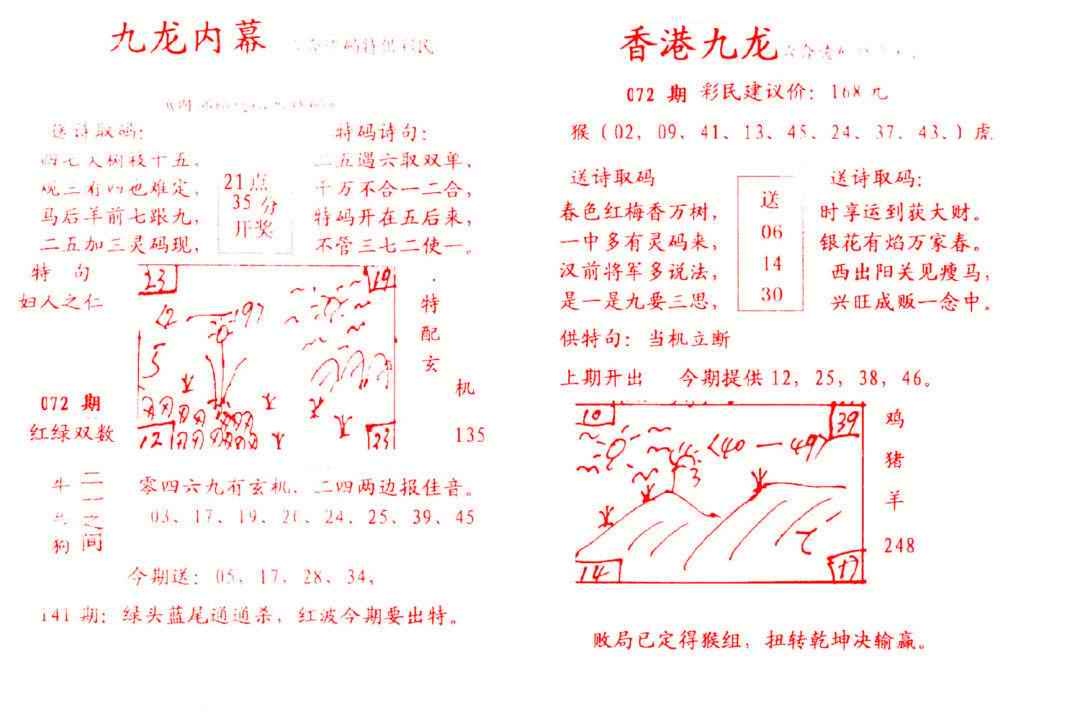 九龙内幕
送诗取码：
马后羊前七跟九，
二五加三灵码现，
21点
35分
开奖
特码诗句：
二五遇六取双单，
千万不合一二合，
特码开在五后来，
不管三七二使一。
特 句
妇人之仁
23
19
12
23
特
配
玄
机
135
072 期
红绿双数
牛
狗
二
一
之
间
零四六九有玄机，二四两边报佳音。
03、17、19、20、24、25、39、45
今期送：05，17、28、34，
141 期：绿头蓝尾通通杀，红波今期要出特。
香港九龙
072 期 彩民建议价：168 元
猴（02、09、41、13、45、24、37、43、）虎
送诗取码
春色红梅香万树，
一中多有灵码来，
汉前将军多说法，
是一是九要三思，
送
06
14
30
送诗取码：
时享运到获大财。
银花有焰万家春。
西出阳关见瘦马，
兴旺成败一念中。
供特句：当机立断
上期开出 今期提供 12，25，38，46。
10
39
(40—49)
3
14
17
鸡
猪
羊
248
败局已定得猴组，扭转乾坤决输赢。